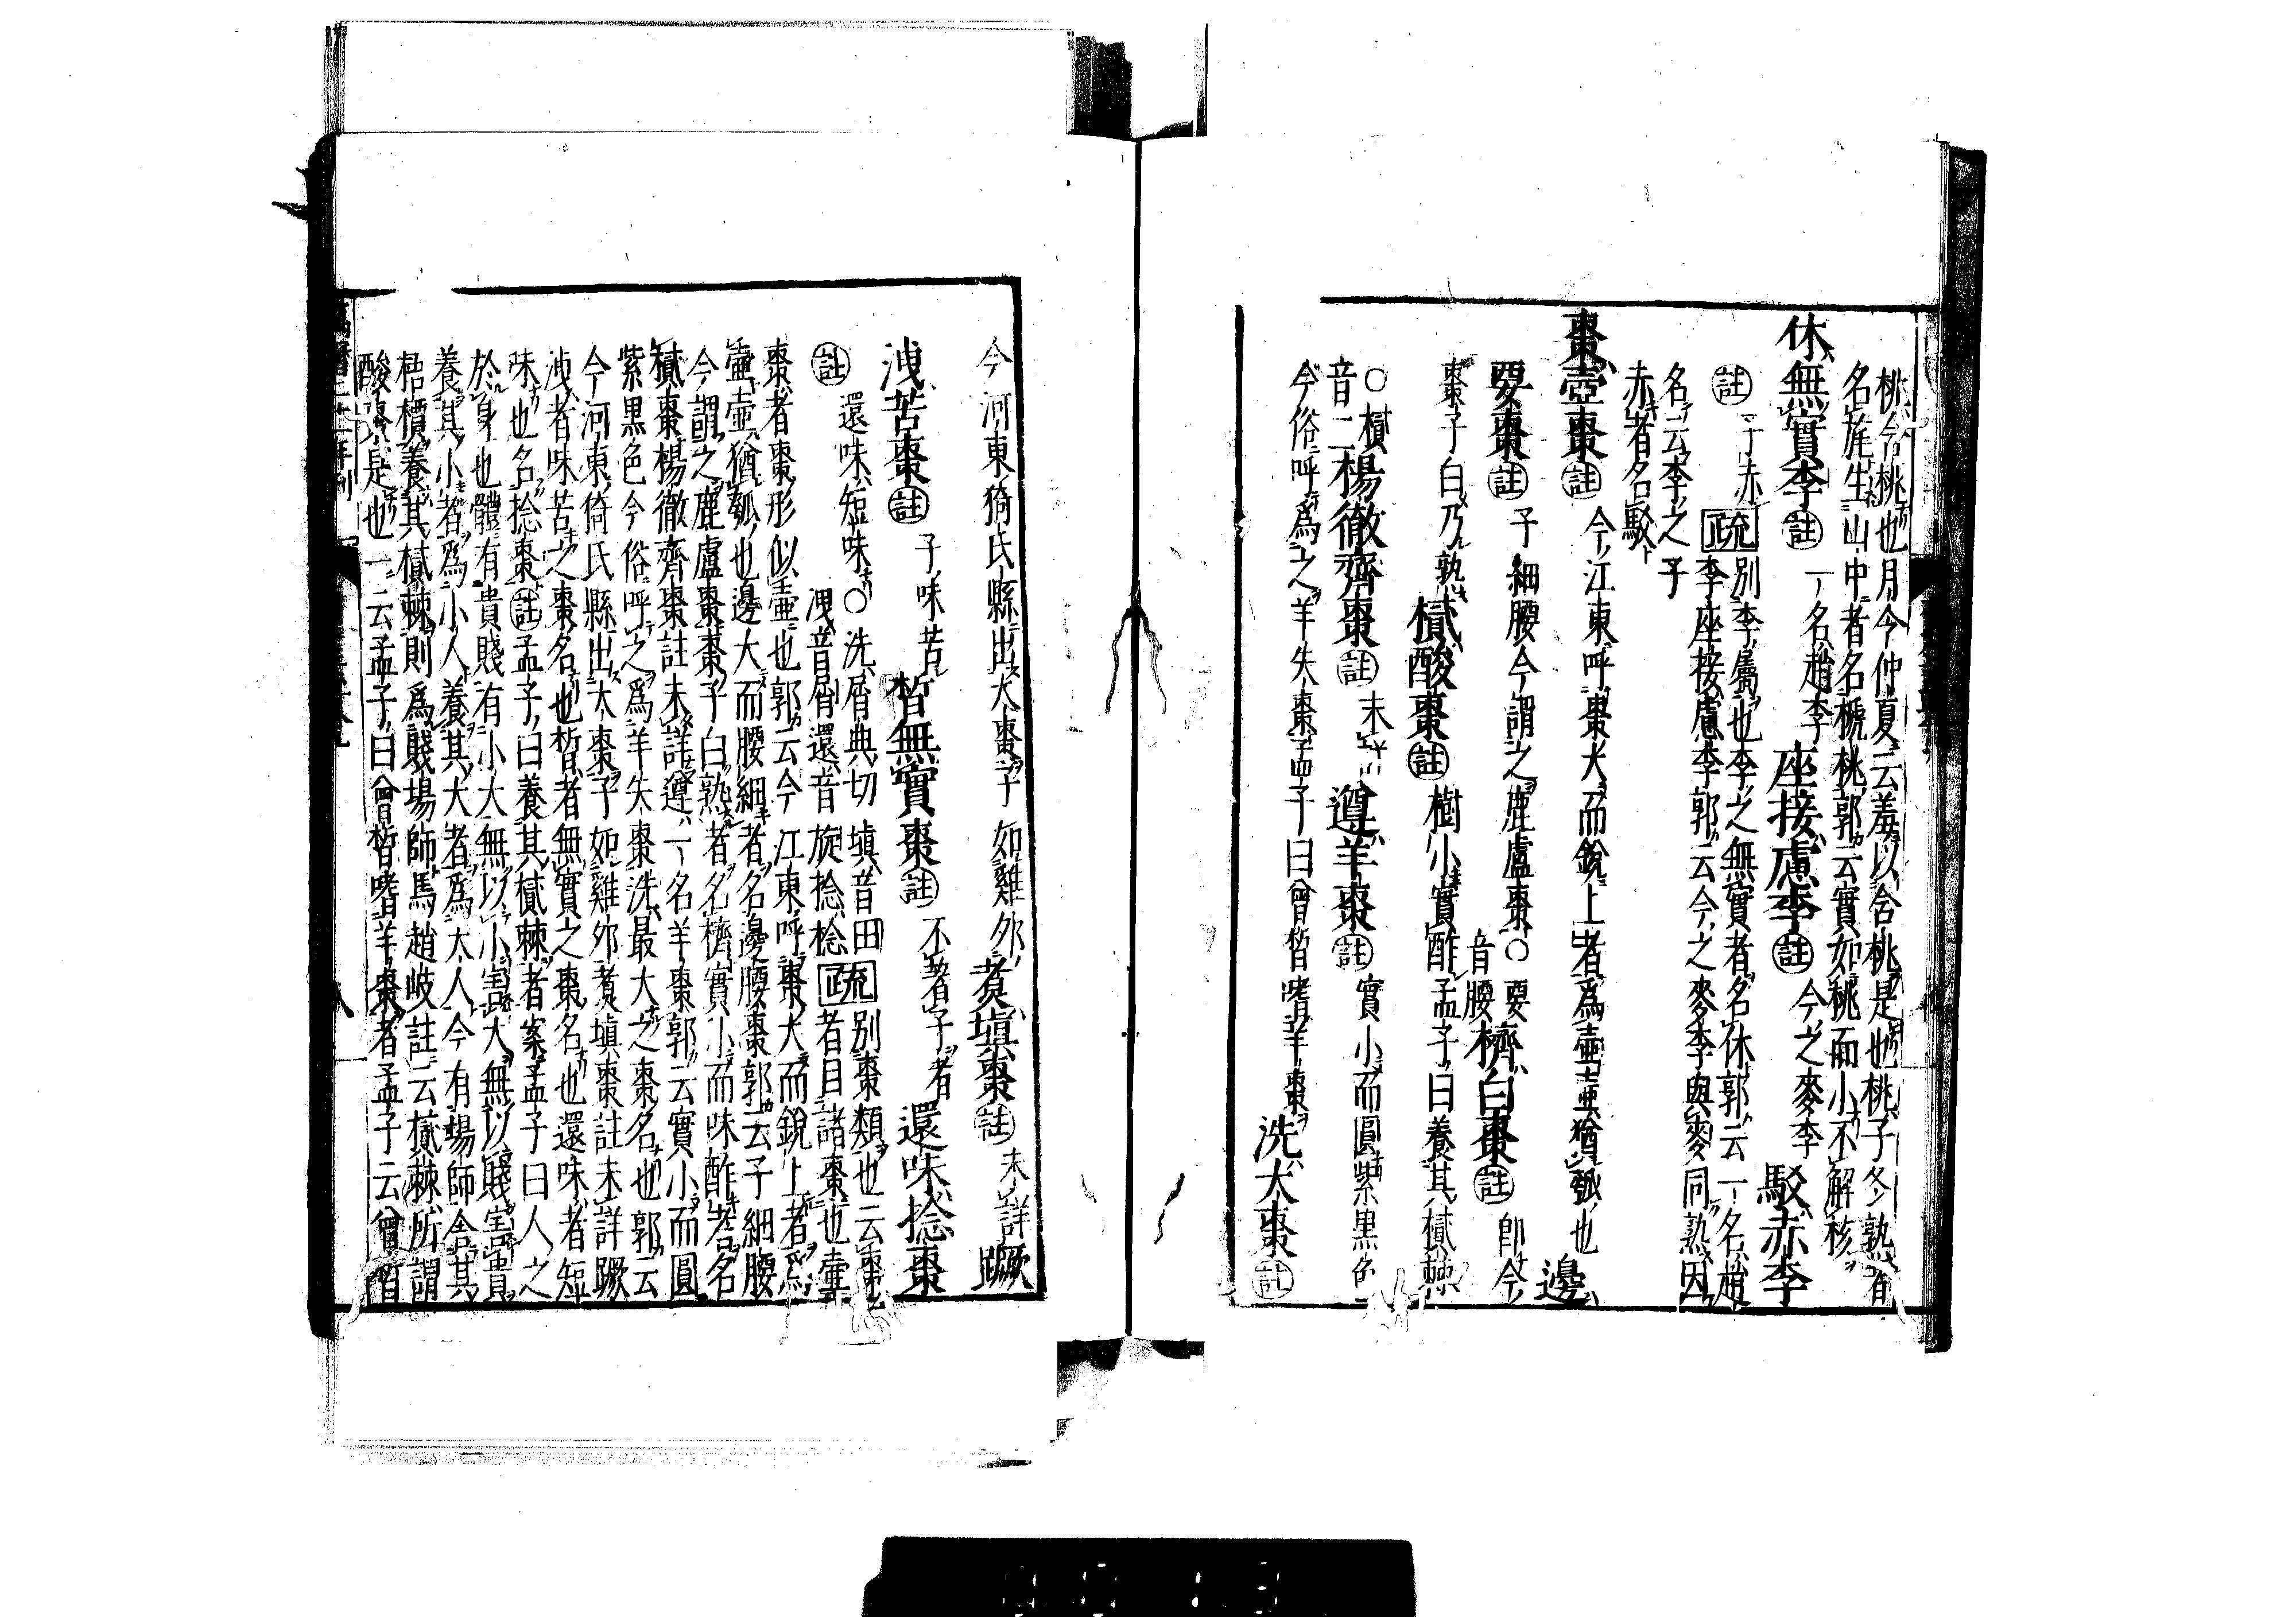 桃含桃也月令仲夏云羞以含桃是也桃子冬熟有
名旄生山中者名榹桃郭云實如桃而小不解核
休無實李註一名趙李座接慮李註今之麥李駁赤李
註子赤疏別李屬也李之無實者名休郭云一名趙
李座接慮李郭云今之麥李與麥同熟因
名云李之子
赤者名駁
棗壺棗註今江東呼棗大而銳上者爲壺壺猶瓠也邊
要棗註子細腰今謂之鹿盧棗○要音腰櫅白棗註卽今
棗子白乃熟樲酸棗註樹小實酢孟子曰養其樲棘
○樲音二楊徹齊棗註未詳遵羊棗註實小而圓紫黑色
今俗呼爲之羊矢棗孟子曰曾晳嗜羊棗洗大棗註
今河東猗氏縣出大棗子如雞卵煮塡棗註未詳蹶
洩苦棗註子味苦晳無實棗註不著子者還味棯棗
註還味短味○洗屑典切塡音田
洩音屑還音旋棯棯疏別棗類也云棗
者目諸棗也壺
棗者棗形似壺也郭云今江東呼棗大而銳上者爲
壺壺猶瓠也邊大而腰細者名邊腰棗郭云子細腰
今謂之鹿盧棗棗子白熟者名櫅實小而味酢者名
樲棗楊徹齊棗註未詳遵一名羊棗郭云實小而圓
紫黑色今俗呼之爲羊矢棗洗最大之棗名也郭云
今河東猗氏縣出大棗子如雞卵煮塡棗註未詳蹶
洩者味苦之棗名也晳者無實之棗名也還味者短
味也名棯棗註孟子曰養其樲棘者案孟子曰人之
於身也體有貴賤有小大無以小害大無以賤害貴
養其小者爲小人養其大者爲大人今有場師舍其
梧檟養其樲棘則爲賤場師焉趙岐註云樲棘所謂
酸棗是也一云孟子曰曾晳嗜羊棗者孟子云曾晳